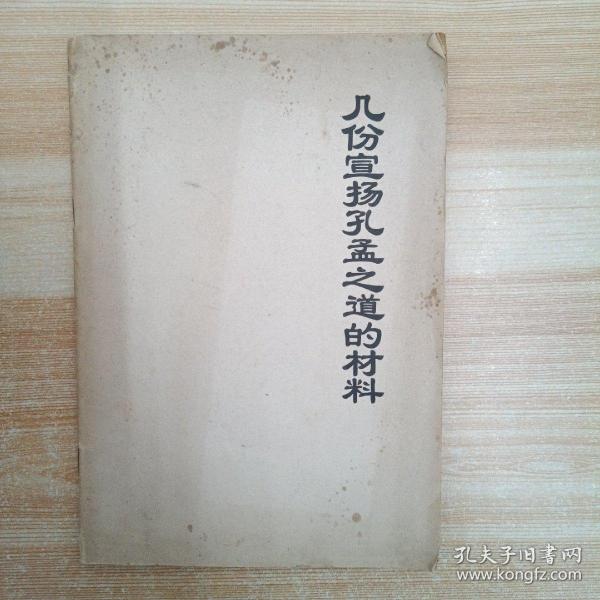 几份宣扬孔孟之道的材料
孔夫子旧書网
www.kongfz.com